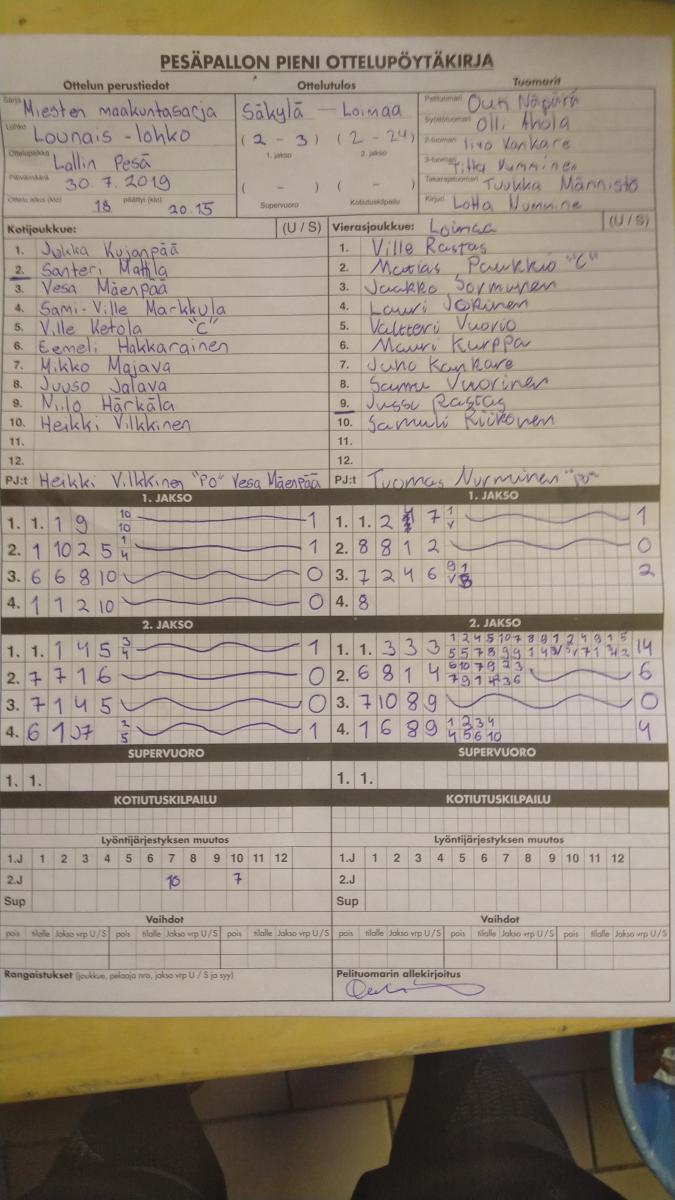 PESÄPALLON PIENI OTTELUPÖYTÄKIRJA
Ottelun perustiedot
Ottelutulos
Tuomarit
Sarja Miesten maakuntasarja
Lohko Lounais-lohko
Ottelupaikka Lallin Pesä
Päivämäärä 30.7.2019
Ottelu alkoi (klo) 18 päättyi (klo) 20.15
Säkylä — Loimaa
(2 - 3) (2 - 24)
1. jakso 2. jakso
( - ) ( - )
Supervuoro Kotiutuskilpailu
Pelituomari Outi Näpärä
Syöttötuomari Olli Ahola
2-tuomari Iivo Kankare
3-tuomari
Takarajatuomari Tuukka Männistö
Kirjuri Lotta Nummine
Kotijoukkue: (U / S)
1. Jukka Kujanpää
2. Santeri Mattila
3. Vesa Mäenpää
4. Sami-Ville Markkula
5. Ville Ketola "C"
6. Eemeli Hakkarainen
7. Mikko Majava
8. Juuso Jalava
9. Niilo Härkälä
10. Heikki Vilkkinen
11.
12.
PJ:t Heikki Vilkkinen "PO" Vesa Mäenpää
Vierasjoukkue: Loimaa (U / S)
1. Ville Rastas
2. Matias Paukkio "C"
3. Jaakko Jormunen
4. Lauri Jokinen
5. Valtteri Vuorio
6. Mauri Kurppa
7. Juho Kankare
8. Samu Vuorinen
9. Jussi Rastas
10. Samuli
11.
12.
PJ:t Tuomas Nurminen "PO"
1. JAKSO
1. 1. 1 9 10 10 1
2. 1 10 2 5 1 4 1
3. 6 6 8 10 0
4. 1 1 2 10 0
1. JAKSO
1. 1. 2 7 1
2. 8 8 1 2 0
3. 7 2 4 6 2
4. 8
2. JAKSO
1. 1. 1 4 5 3 4 1
2. 7 7 1 6 0
3. 7 1 4 5 0
4. 6 1 7 2 5 1
2. JAKSO
1. 1. 3 3 3 1 2 4 5 10 7 8 9 1 2 4 9 1 5 14
2. 6 8 1 4 6 10 7 9 2 3 6
3. 7 10 8 9 0
4. 1 6 8 9 1 2 3 4 4 5 6 10 4
SUPERVUORO
1. 1.
SUPERVUORO
1. 1.
KOTIUTUSKILPAILU
KOTIUTUSKILPAILU
Lyöntijärjestyksen muutos
1.J 1 2 3 4 5 6 7 8 9 10 11 12
2.J 10 7
Sup
Lyöntijärjestyksen muutos
1.J 1 2 3 4 5 6 7 8 9 10 11 12
2.J
Sup
Vaihdot
pois tilalle Jakso vrp U / S pois tilalle Jakso vrp U / S pois tilalle Jakso vrp U / S
Vaihdot
pois tilalle Jakso vrp U / S pois tilalle Jakso vrp U / S pois tilalle Jakso vrp U / S
Rangaistukset (joukkue, pelaaja nro, jakso vrp U / S ja syy)
Pelituomarin allekirjoitus